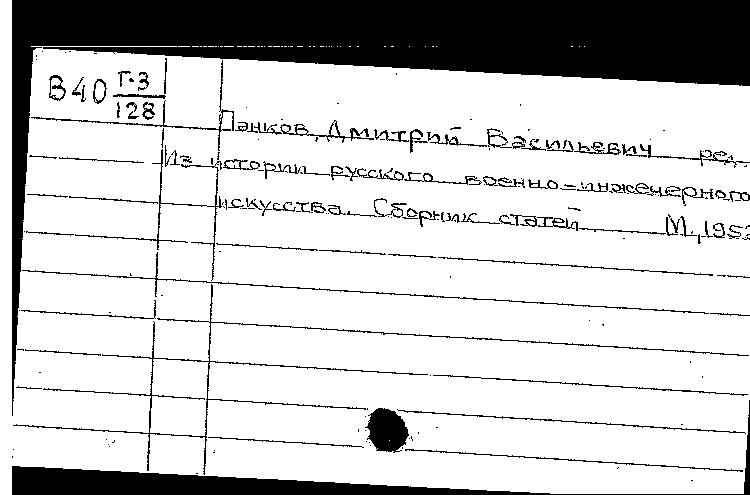 В40 Г-3
128
Панков, Дмитрий Васильевич ред.
Из истории русского военно-инженерного
искусства. Сборник статей М., 1952